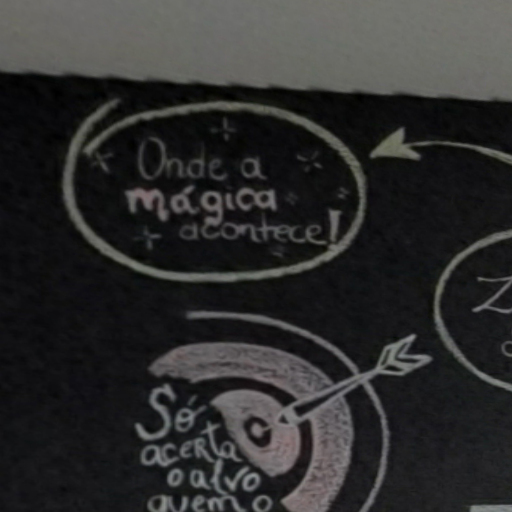 Onde a
mágica
acontece!
Só
acerta
o alvo
quem o